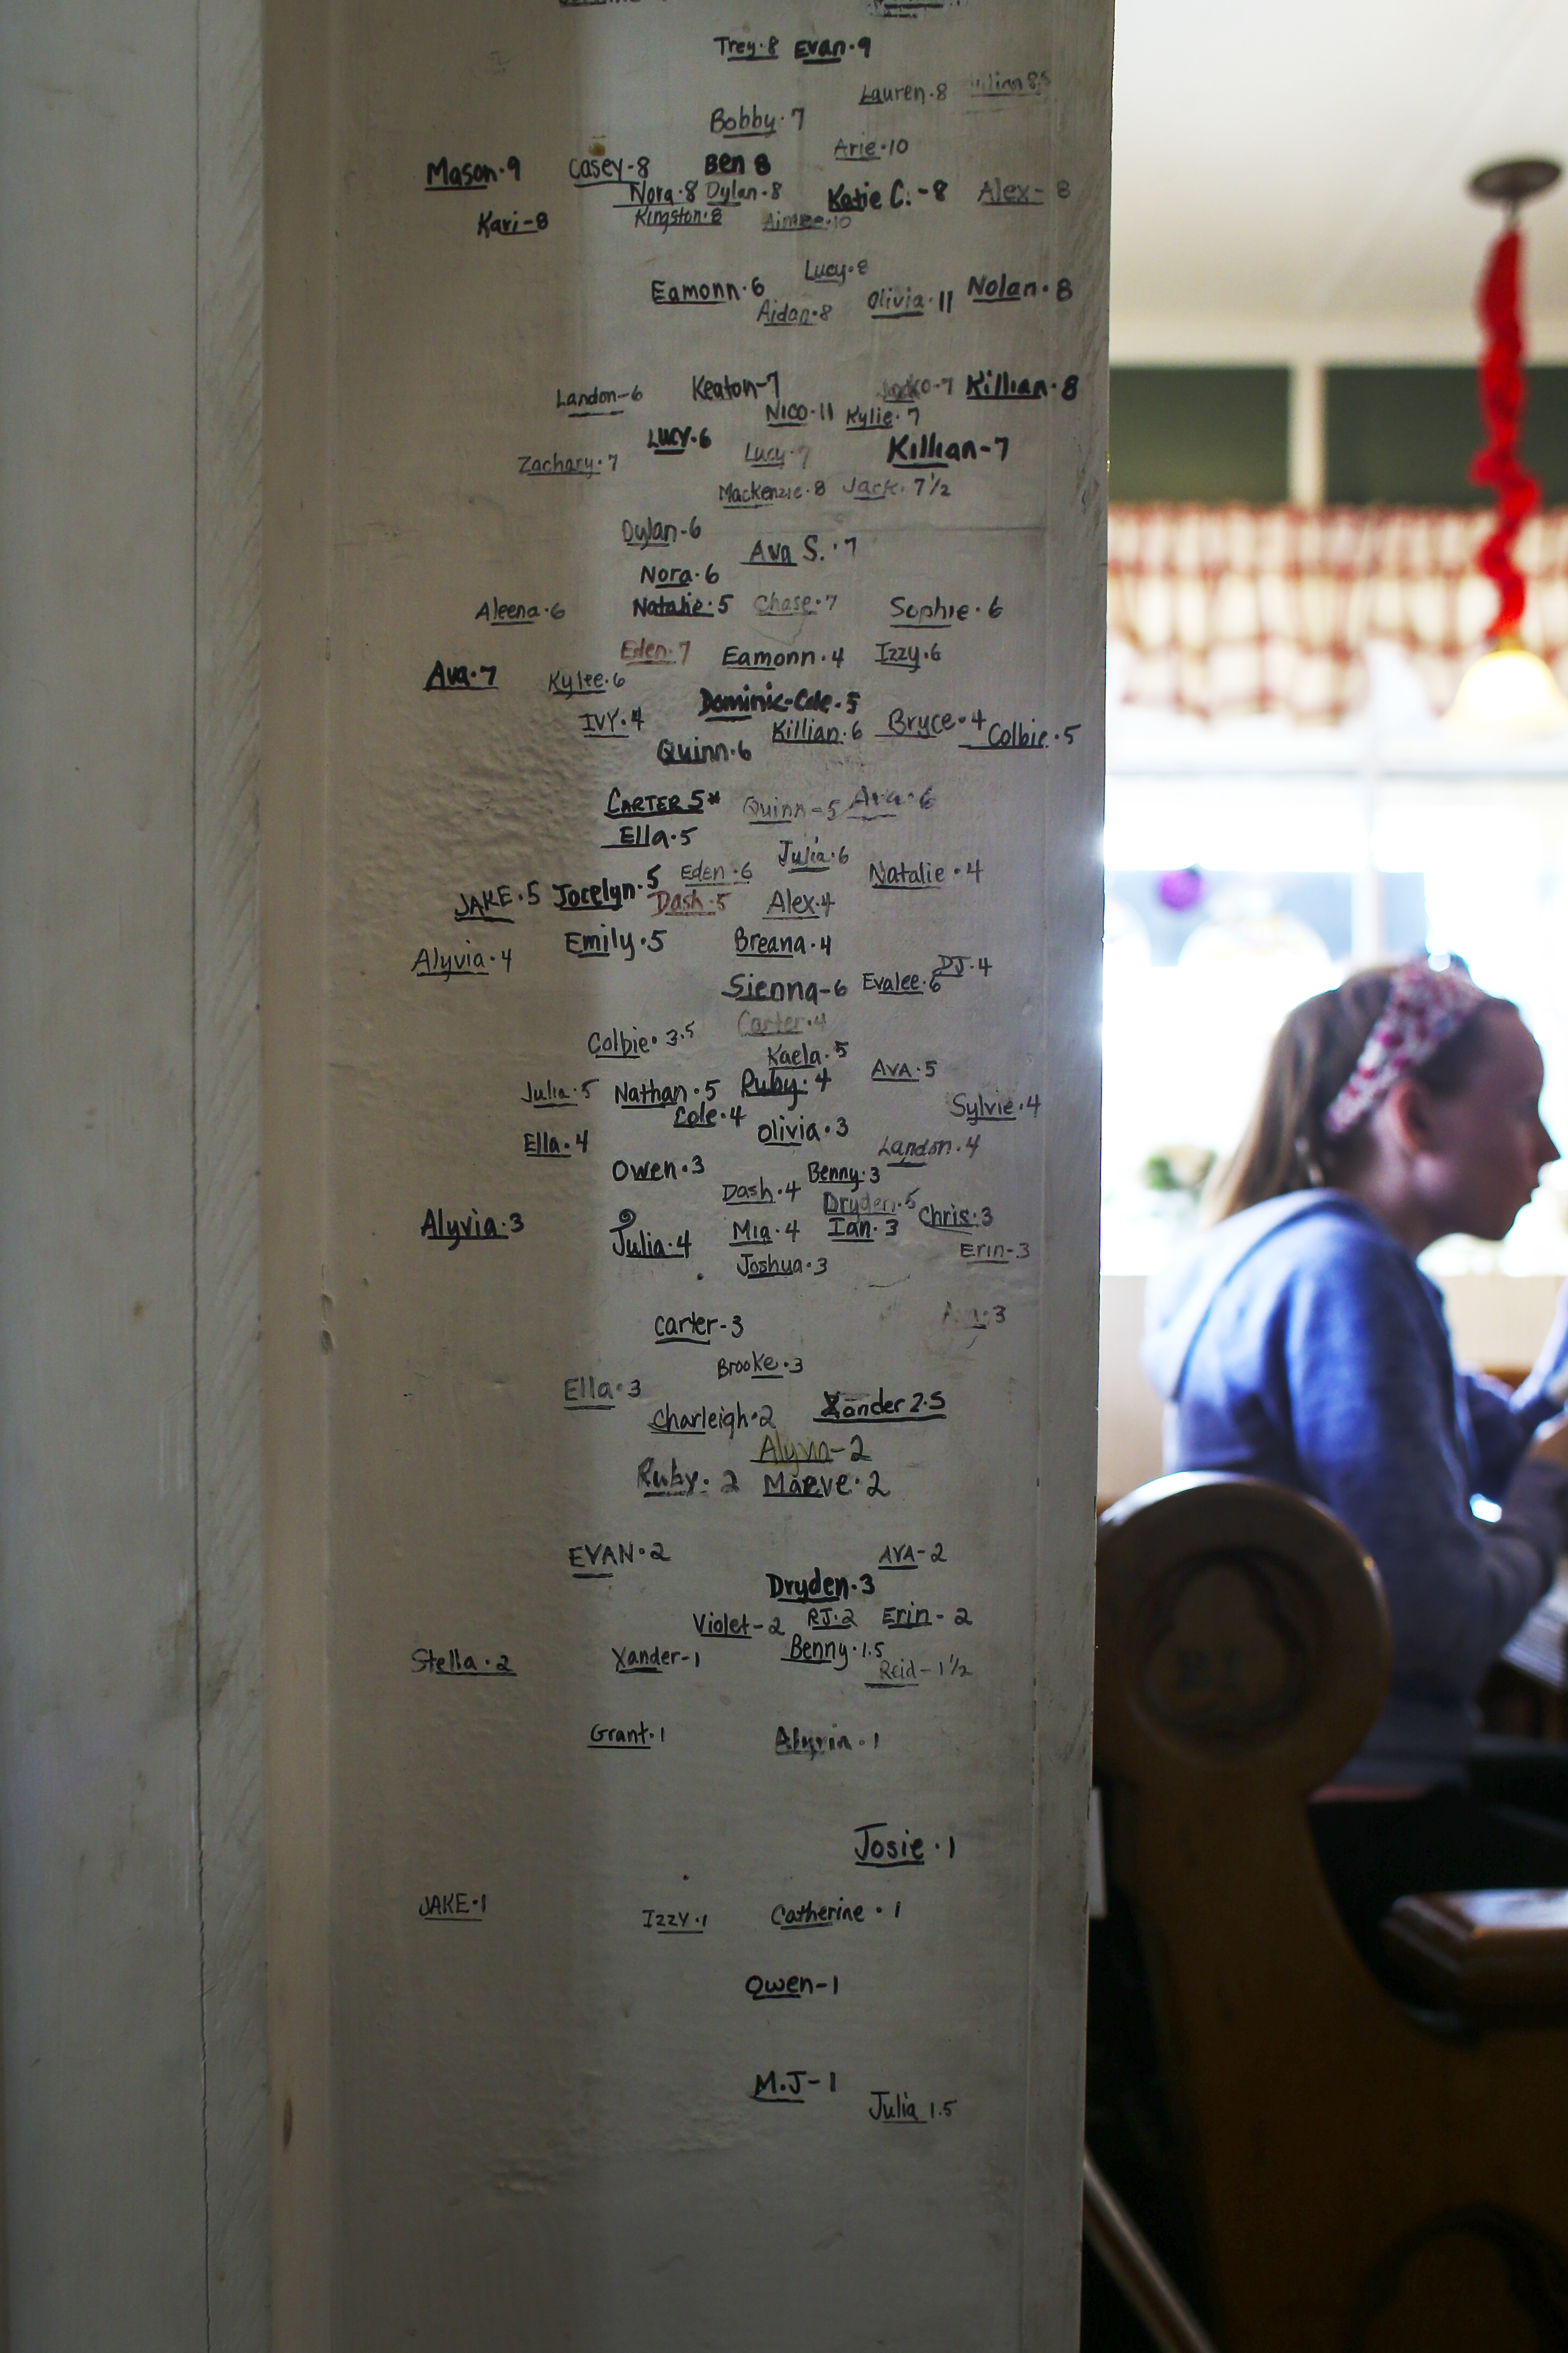 Trey·8 Evan·9
Lauren·8
Bobby·7
Arie·10
Mason·9 Casey-8 Ben 8
Nora·8 Dylan-8 Katie C.-8 Alex-8
Kari-8 Kingston·8 Aimee·10
Lucy·8
Eamonn·6 Olivia·11 Nolan·8
Aidan·8
Landon-6 Keaton-7 Killian·8
Nico-11 Kylie·7
Lucy·6 Lucy·7 Killian-7
Zachary·7
Mackenzie·8 Jack·7½
Dylan-6
Ava S.·7
Nora·6
Aleena·6 Natalie·5 Chase·7 Sophie·6
Eden·7 Eamonn·4 Izzy·6
Ava·7 Kylee·6
Dominic-Cole·5
IVY·4 Killian·6 Bryce·4 Colbie·5
Quinn·6
CARTER 5* Quinn-5 Ava·6
Ella·5
Julia·6
JAKE·5 Jocelyn·5 Eden·6 Natalie·4
Dash·5 Alex·4
Alyvia·4 Emily·5 Breana·4
Sienna-6 Evalee·6 DJ·4
Carter·4
Colbie·3.5 Kaela·5
Julia·5 Nathan·5 Ruby·4 AVA·5
Cole·4 Sylvie·4
Ella·4 Olivia·3 Landon·4
Owen·3 Benny·3
Dash·4 Dryden·5
Alyvia·3 Julia·4 Mia·4 Ian·3 Chris·3
Joshua·3 Erin-3
Carter-3
Brooke·3
Ella·3
Charleigh·2 Xander 2.5
Alyvia-2
Ruby·2 Maeve·2
EVAN·2 AVA-2
Dryden·3
Violet-2 RJ·2 Erin-2
Stella·2 Xander-1 Benny·1.5
Reid-1½
Grant·1 Alyvia·1
Josie·1
JAKE·1 IZZY·1 Catherine·1
Owen-1
M.J-1
Julia 1.5